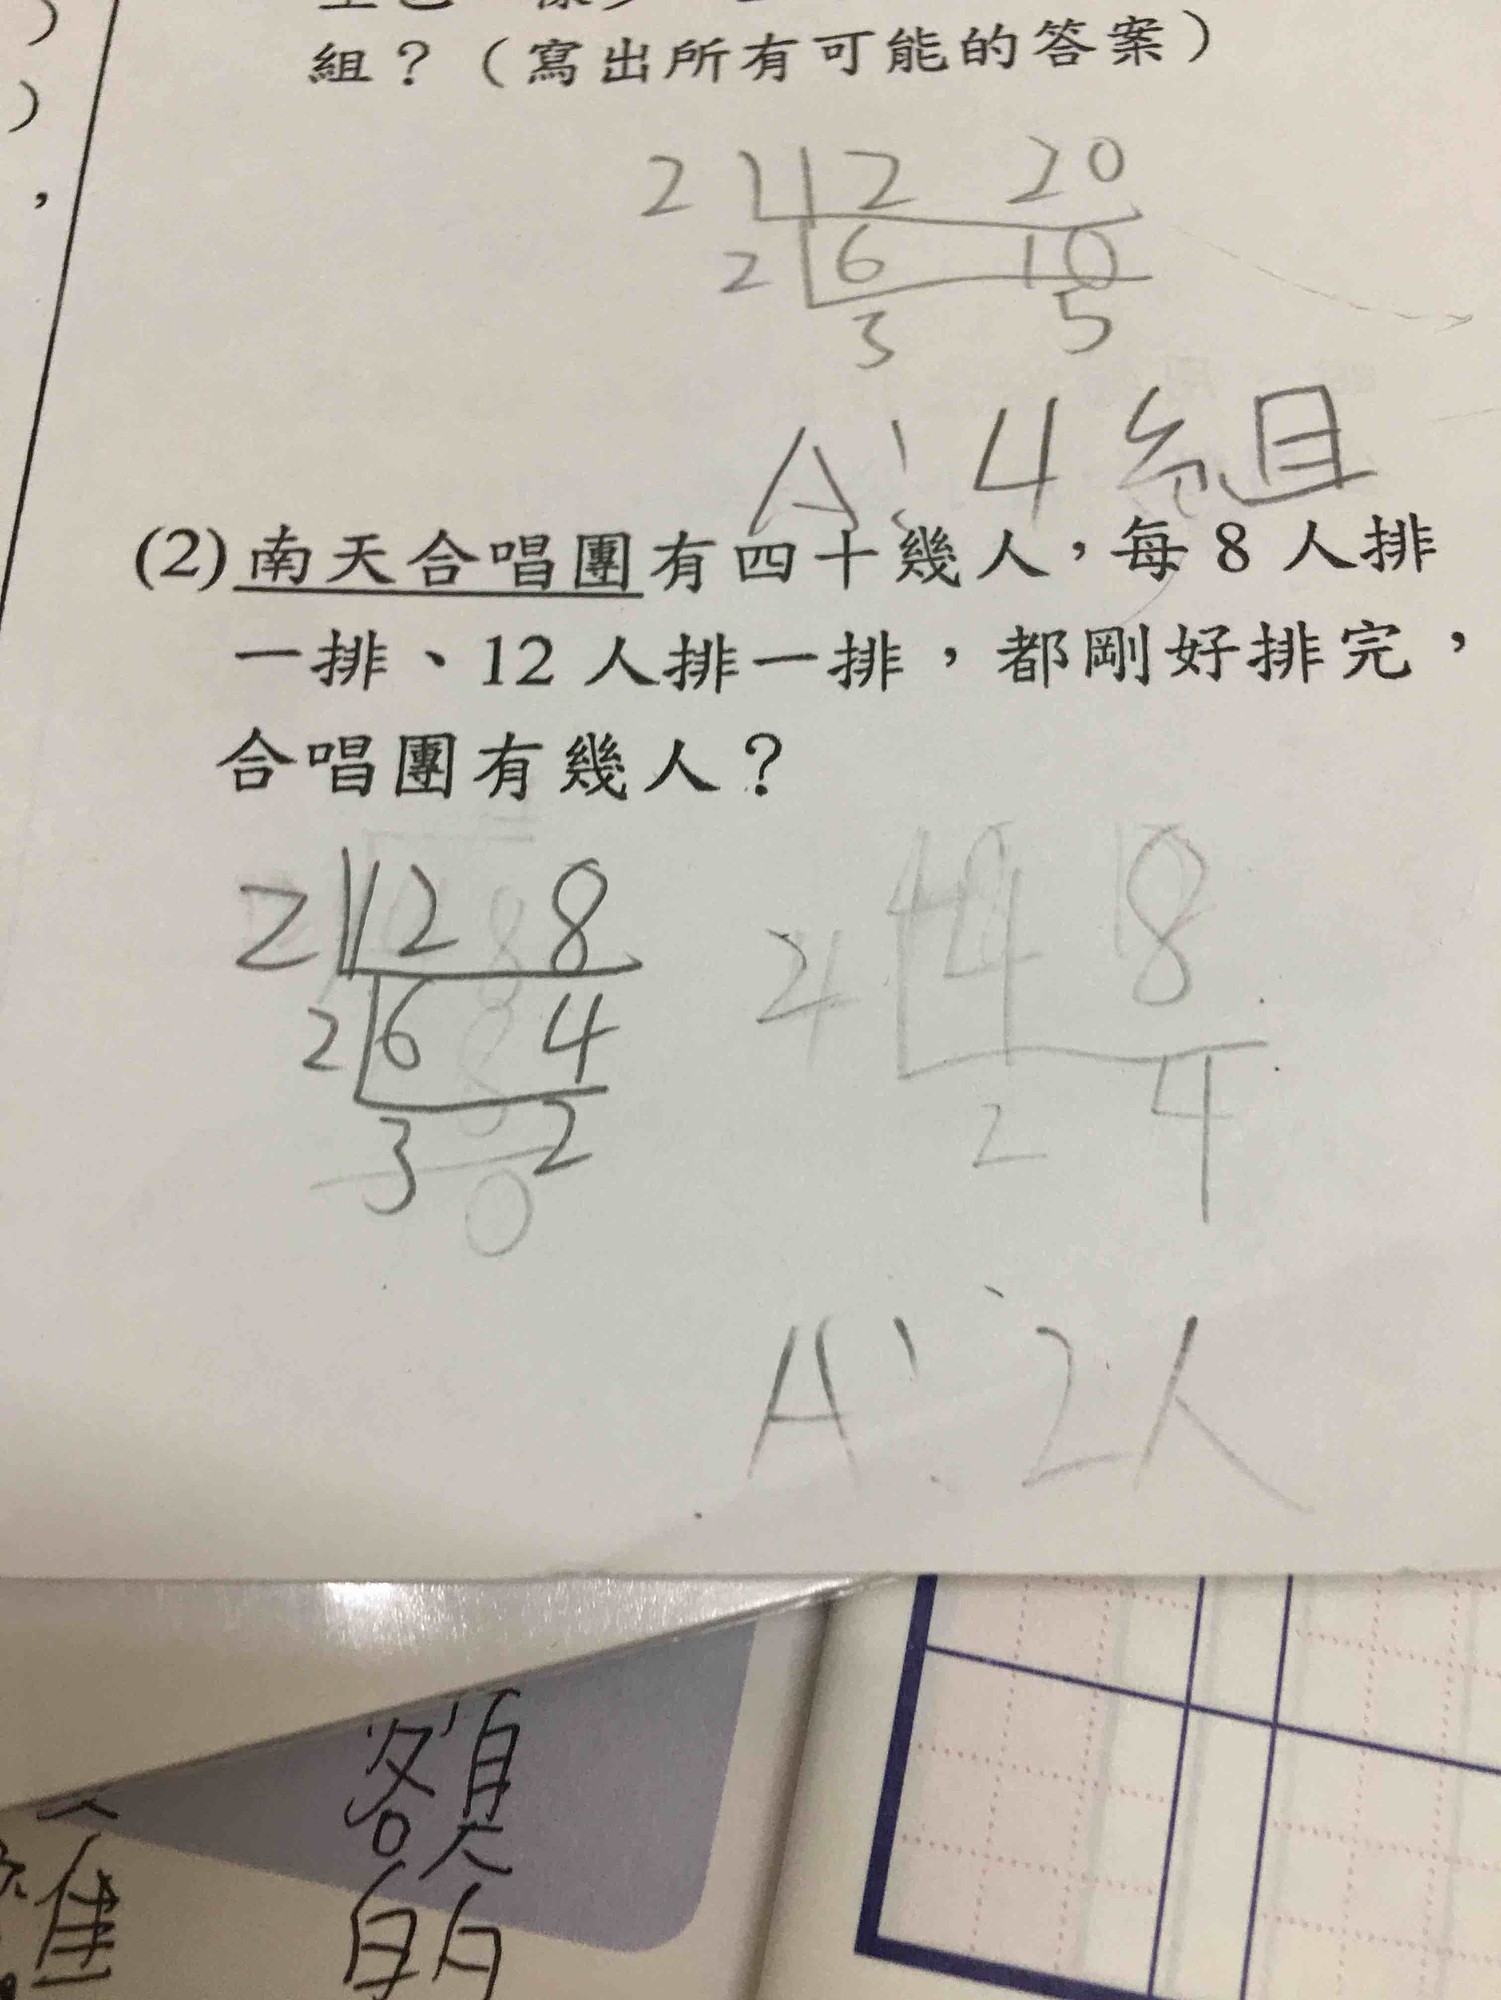 組？（寫出所有可能的答案）
2 12 20
2 6 10
3 5
A: 4組
(2)南天合唱團有四十幾人，每8人排
一排、12人排一排，都剛好排完，
合唱團有幾人？
2 12 8
2 6 4
3 2
0
8
2 4
A: 2人
額